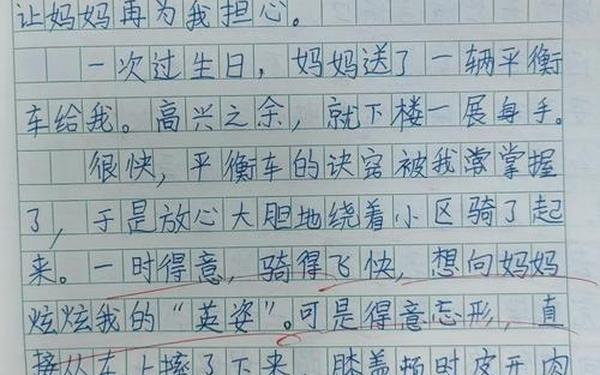 让妈妈再为我担心。
一次过生日，妈妈送了一辆平衡
车给我。高兴之余，就下楼一展身手。
很快，平衡车的诀窍被我掌握
了，于是放心大胆地绕着小区骑了起
来。一时得意，骑得飞快，想向妈妈
炫炫我的“英姿”。可是得意忘形，直
接从车上摔了下来，膝盖顿时皮开肉